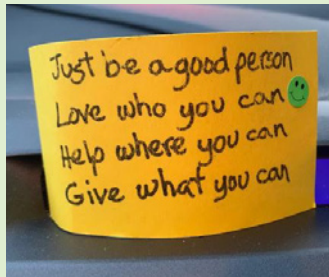 Just be a good person
Love who you can
Help where you can
Give what you can